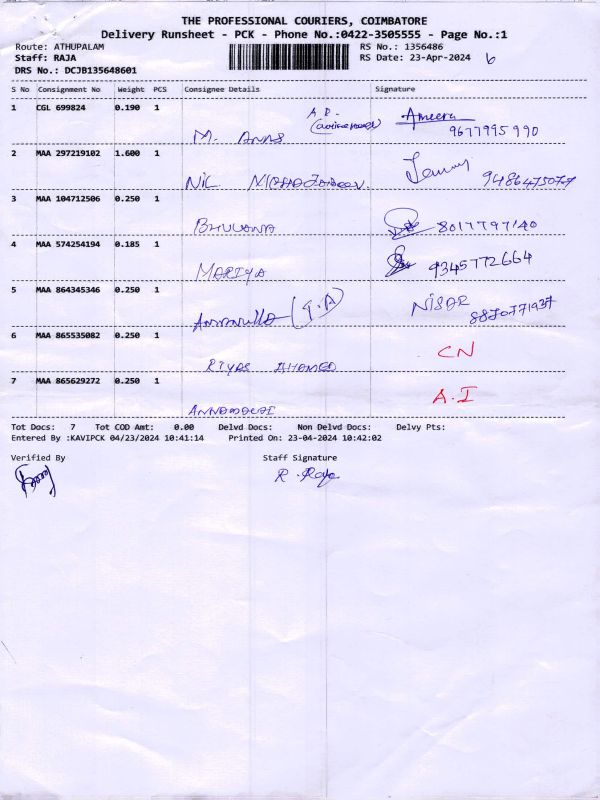 THE PROFESSIONAL COURIERS, COIMBATORE
Delivery Runsheet - PCK - Phone No.:0422-3505555 - Page No.:1
Route: ATHUPALAM RS No.: 1356486
Staff: RAJA RS Date: 23-Apr-2024 6
DRS No.: DCJB135648601
S No Consignment No Weight PCS Consignee Details Signature
1 CGL 699824 0.190 1 Ameera
M. 9677995990
2 MAA 297219102 1.600 1
NIC.
3 MAA 104712506 0.250 1
BHUVANA 8017797140
4 MAA 574254194 0.185 1
MARIYA 9345772664
5 MAA 864345346 0.250 1 NISAR
Amanulla 8870771937
6 MAA 865535082 0.250 1 CN
RIYAS AHAMED
7 MAA 865629272 0.250 1 A.I
ANNAMALAI
Tot Docs: 7 Tot COD Amt: 0.00 Delvd Docs: Non Delvd Docs: Delvy Pts:
Entered By :KAVIPCK 04/23/2024 10:41:14 Printed On: 23-04-2024 10:42:02
Verified By Staff Signature
R. Raja